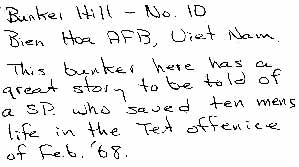 Bunker Hill - No. 10
Bien Hoa AFB, Viet Nam.
This bunker here has a
great story to be told of
a SP. who saved ten mens
life in the Tet offenice
of Feb. '68.